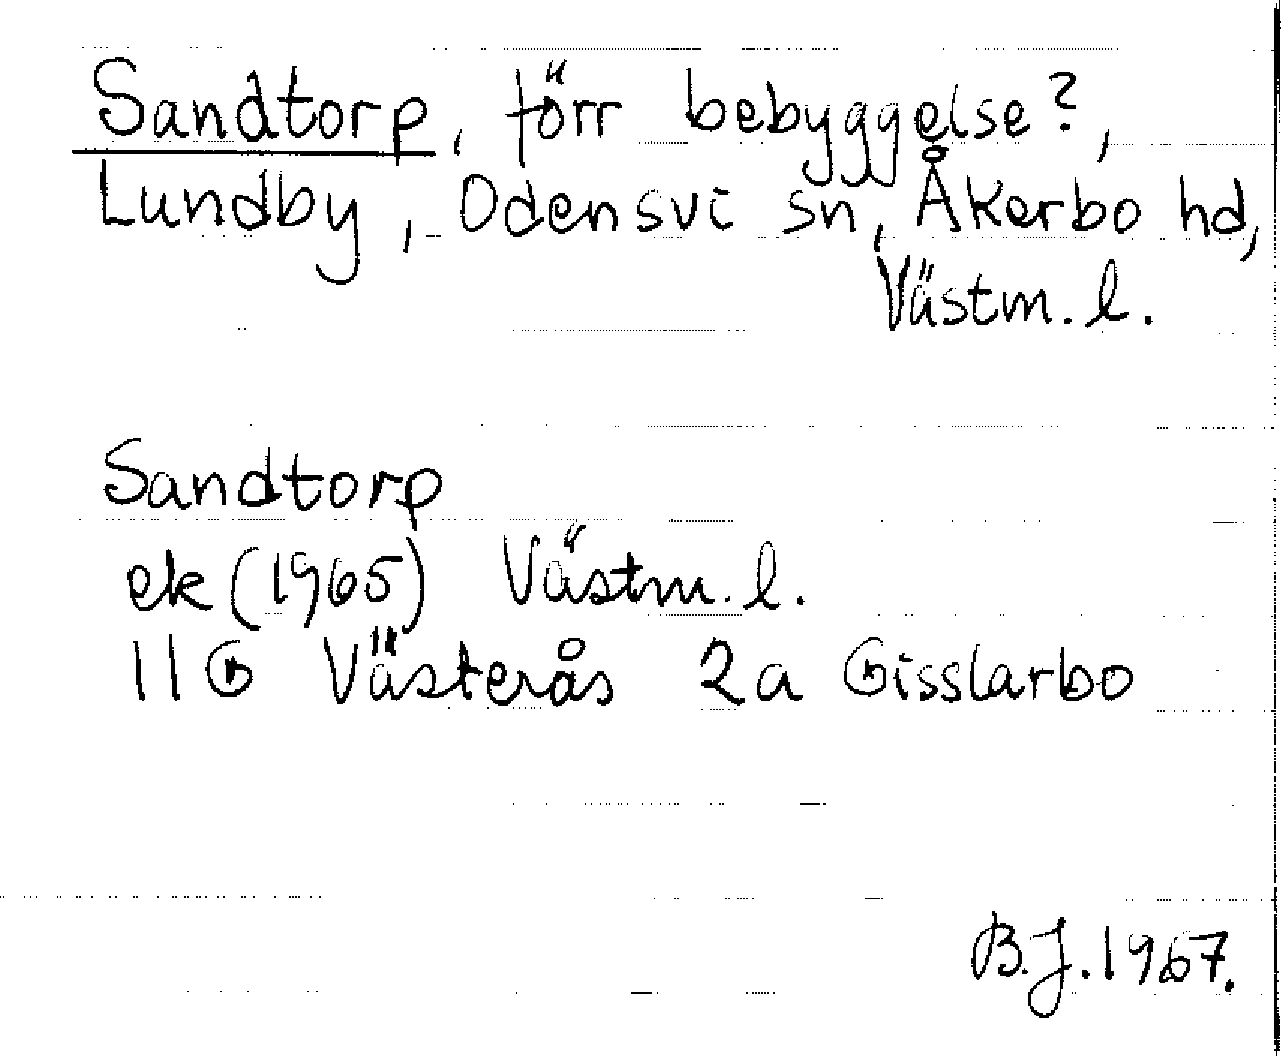 Sandtorp, förr bebyggelse?,
Lundby, Odensvi sn, Åkerbo hd,
Västm. l.
Sandtorp
ek (1965) Västm. l.
11 G Västerås 2a Gisslarbo
B.J. 1967.